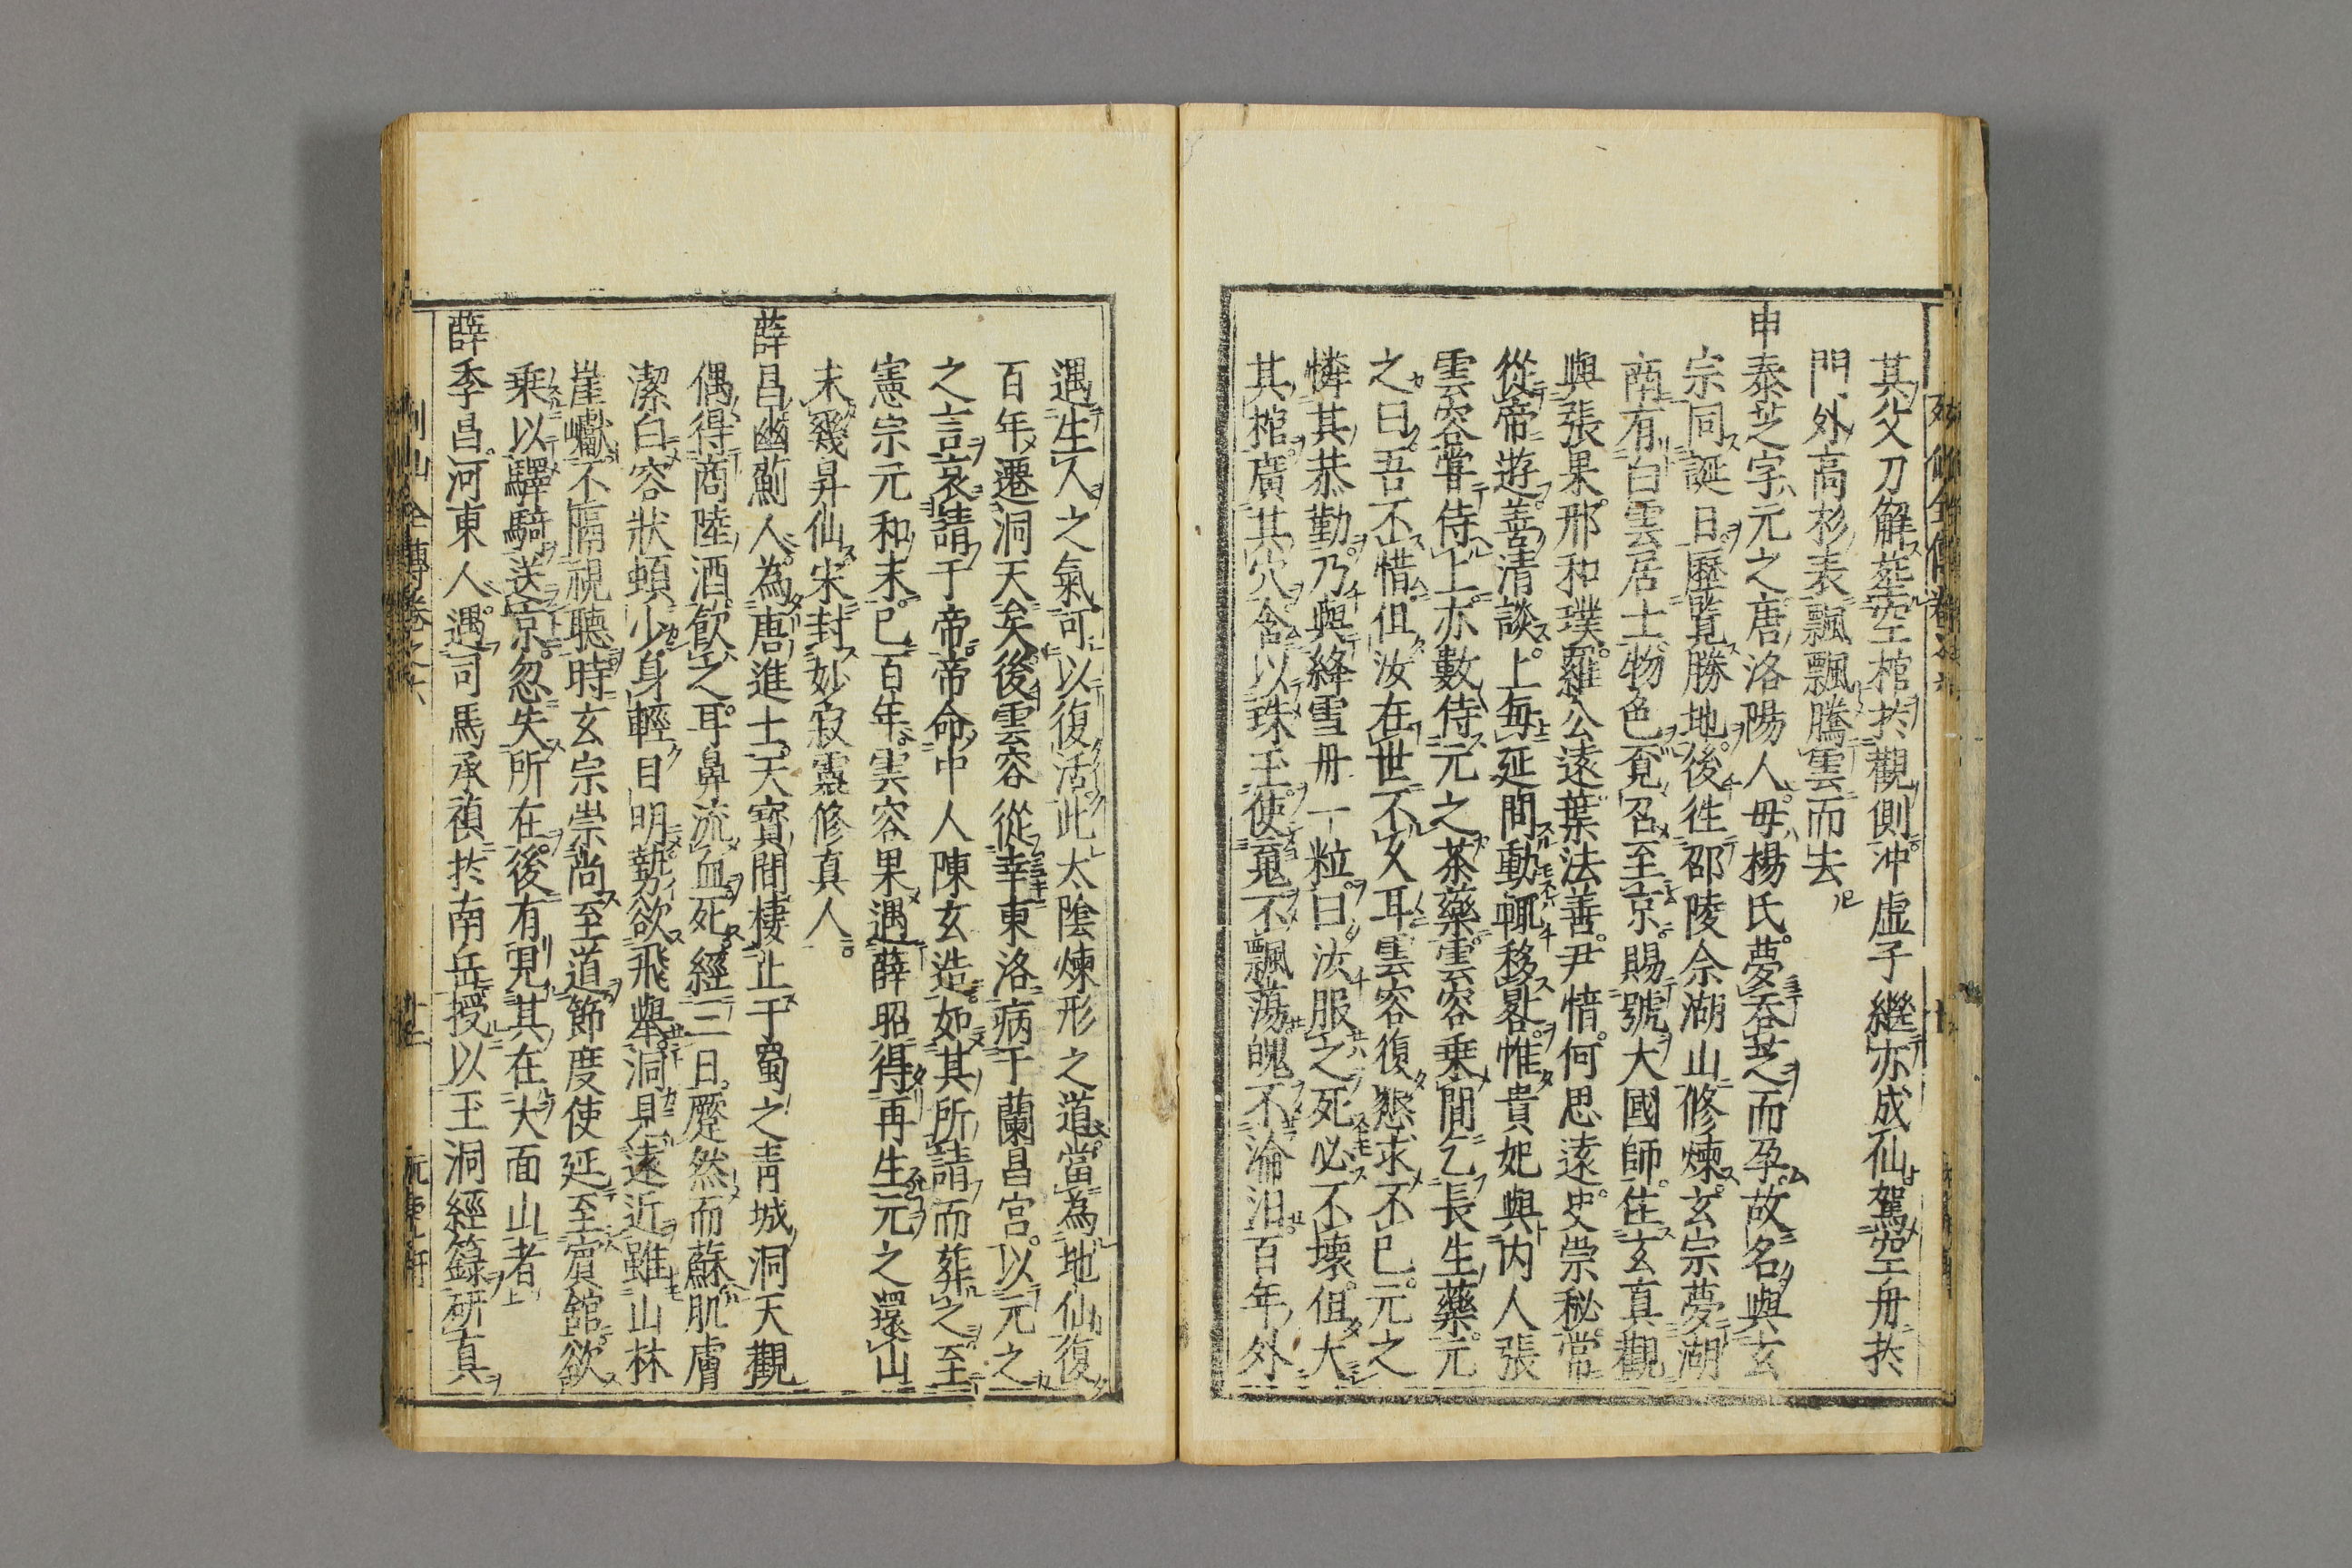 其父刀解葬空棺於觀側冲虛子繼亦成仙駕空舟於
門外高杉表飄飄騰雲而去
申泰芝字元之唐洛陽人母楊氏夢吞芝而孕故名與玄
宗同誕日歷覽勝地後徃邵陵佘湖山修煉玄宗夢湖
南有白雲居士物色覓召至京賜號大國師住玄真觀
與張果邢和璞羅公遠葉法善尹愔何思遠史崇秘常
從帝遊善清談上每延間動輒移晷惟貴妃與內人張
雲容嘗侍上亦數侍元之茶藥雲容乘間乞長生藥元
之曰吾不惜但汝在世不久耳雲容復懇求不已元之
憐其恭勤乃與絳雪丹一粒曰汝服之死必不壞但大
其棺廣其穴含以珠玉使䰟不飄蕩魄不淪汨百年外
遇生人之氣可以復活此太陰煉形之道當為地仙復
百年遷洞天矣後雲容從幸東洛病于蘭昌宮以元之
之言哀請于帝帝命中人陳玄造如其所請而葬之至
憲宗元和末已百年雲容果遇薛昭得再生元之還山
末幾昇仙宋封妙寂靈修真人
薛昌幽薊人為唐進士天寶間棲止于蜀之青城洞天觀
偶得商陸酒飲之耳鼻流血死經三日蹷然而蘇肌膚
潔白容狀頓少身輕目明勢欲飛舉洞見遠近雖山林
崖巘不隔視聽時玄宗崇尚至道節度使延至賓館欲
乘以驛騎送京忽失所在後有見其在大面山者
薛季昌河東人遇司馬承禎於南岳授以玉洞經籙研真
列仙全傳卷之六